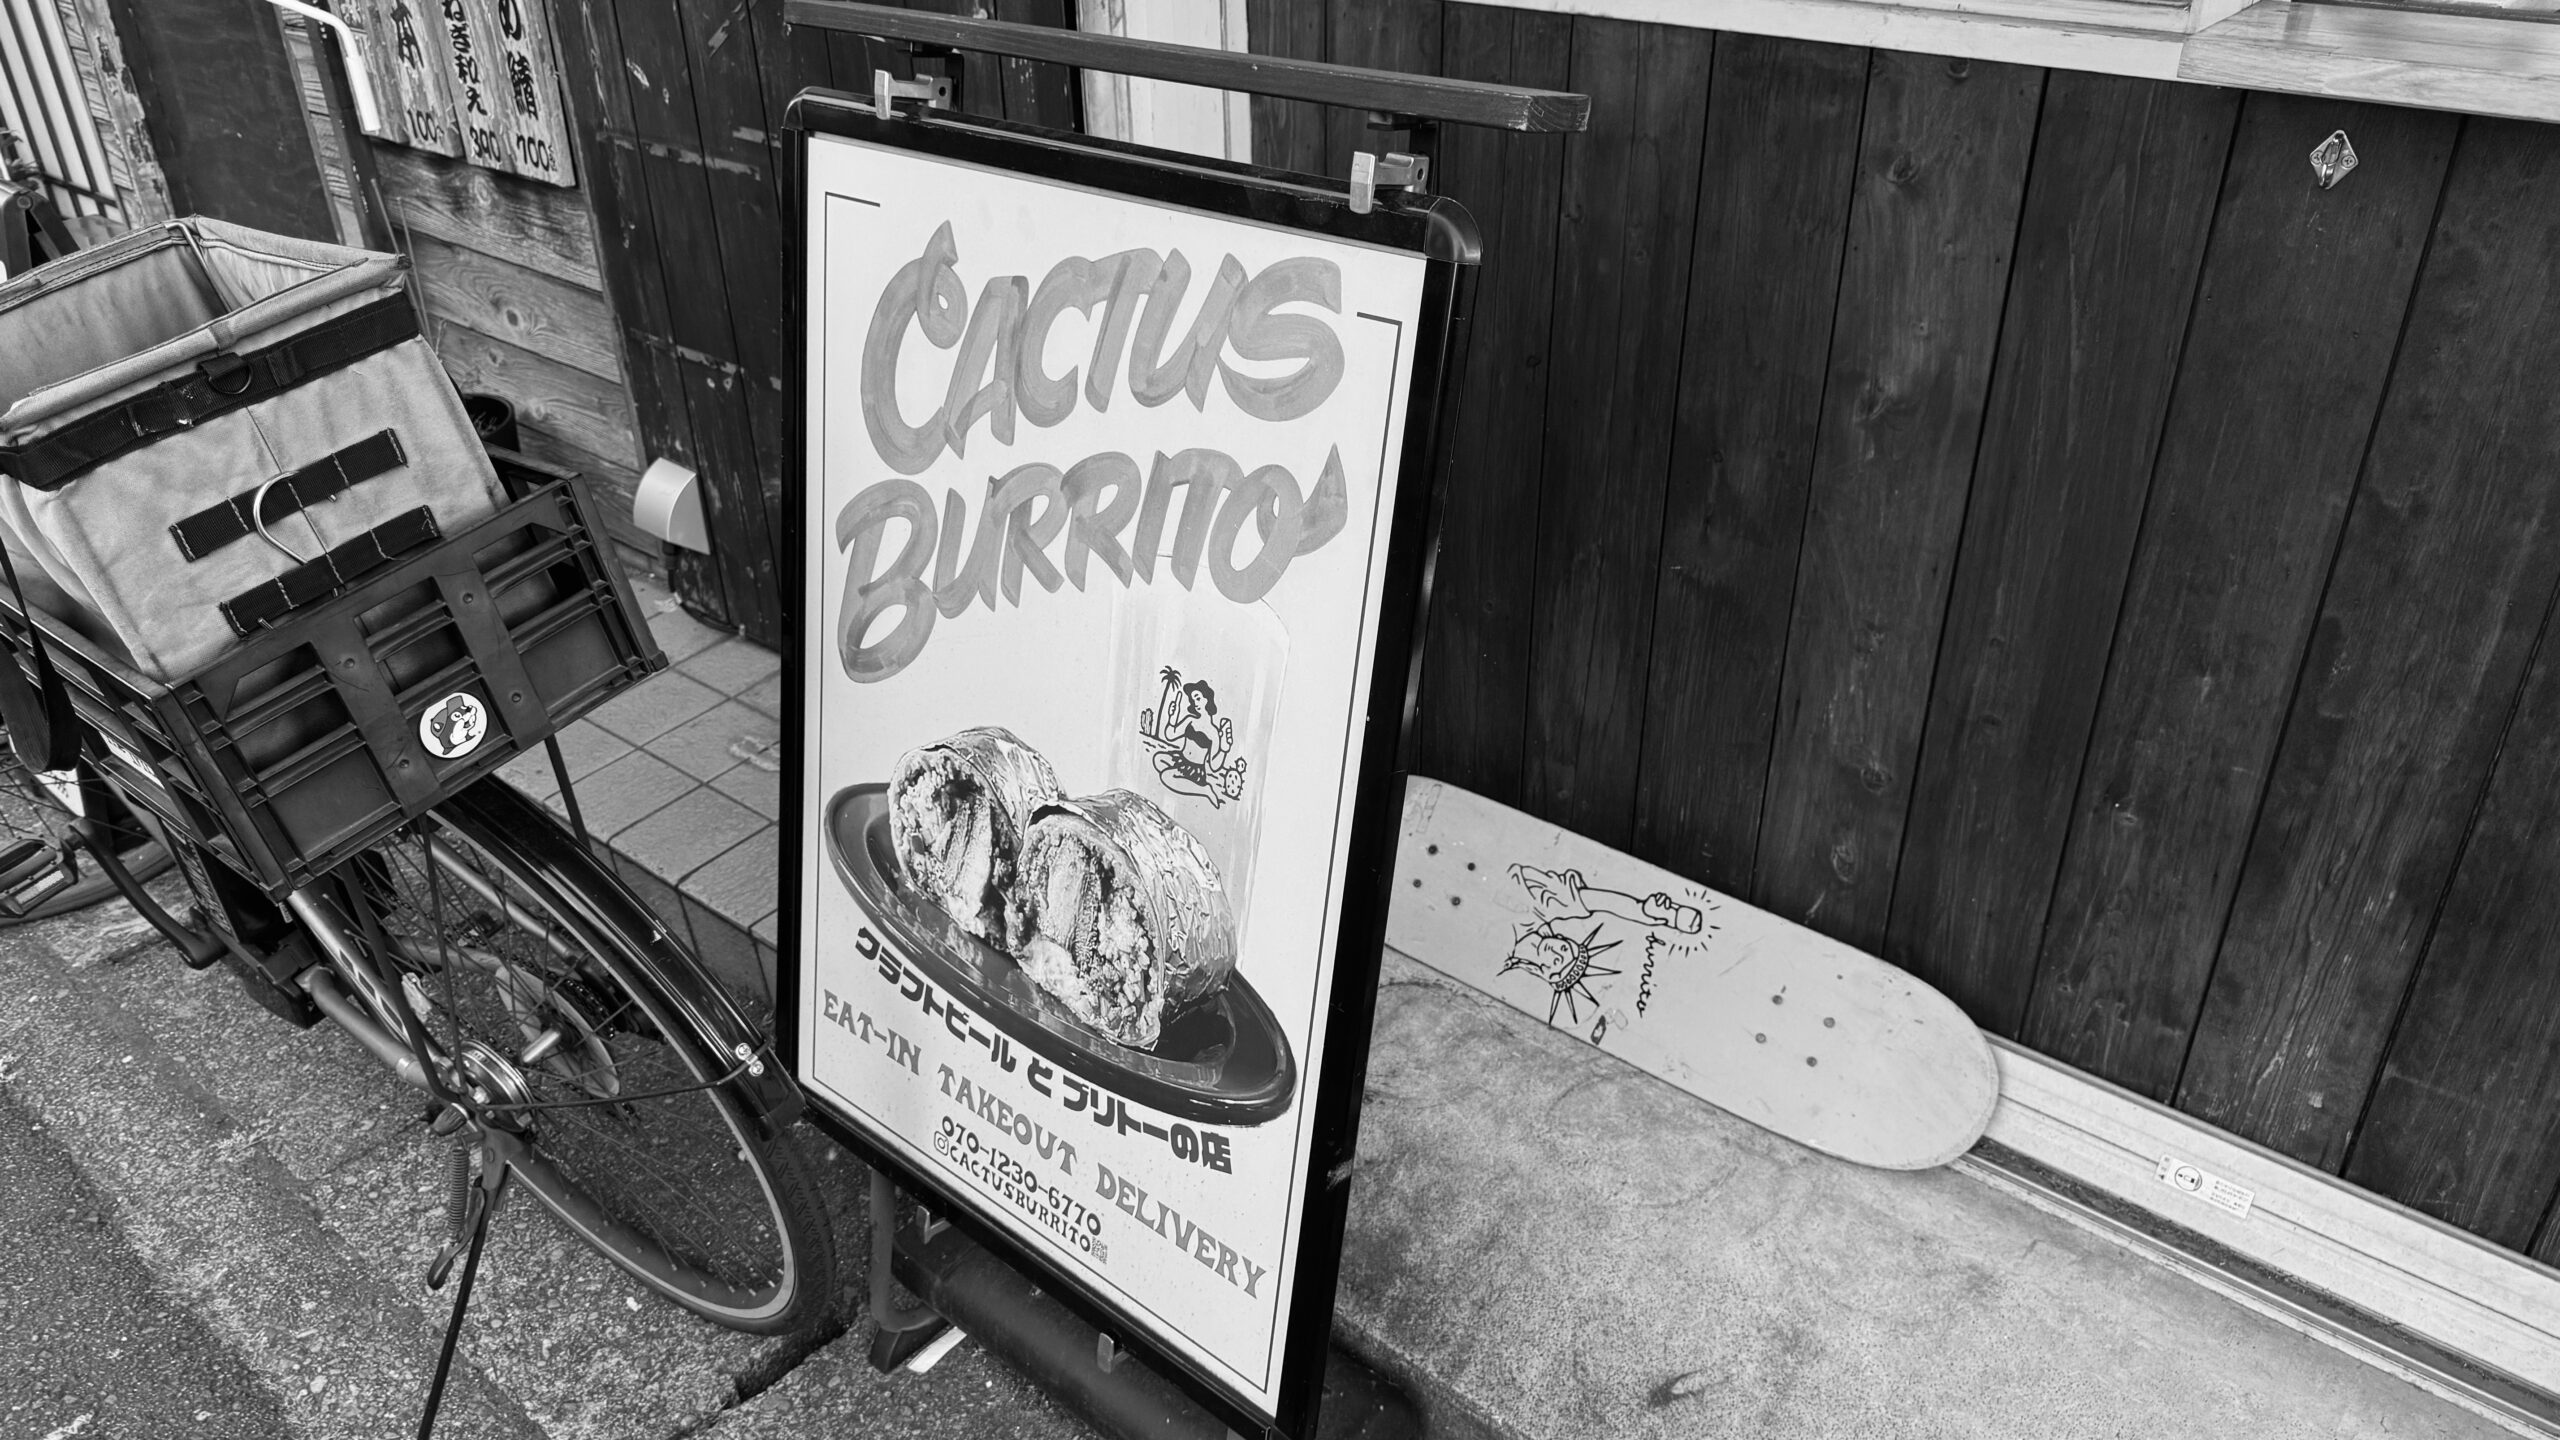 CACTUS
BURRITO
クラフトビール と ブリトーの店
EAT-IN TAKEOUT DELIVERY
070-1230-6770
CACTUSBURRITO
burritos
ねぎ和え
390
め鯖
700
100